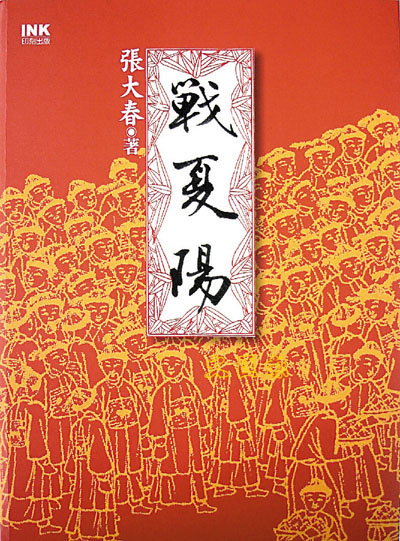 INK
印刻出版
張大春◉著
戰夏陽